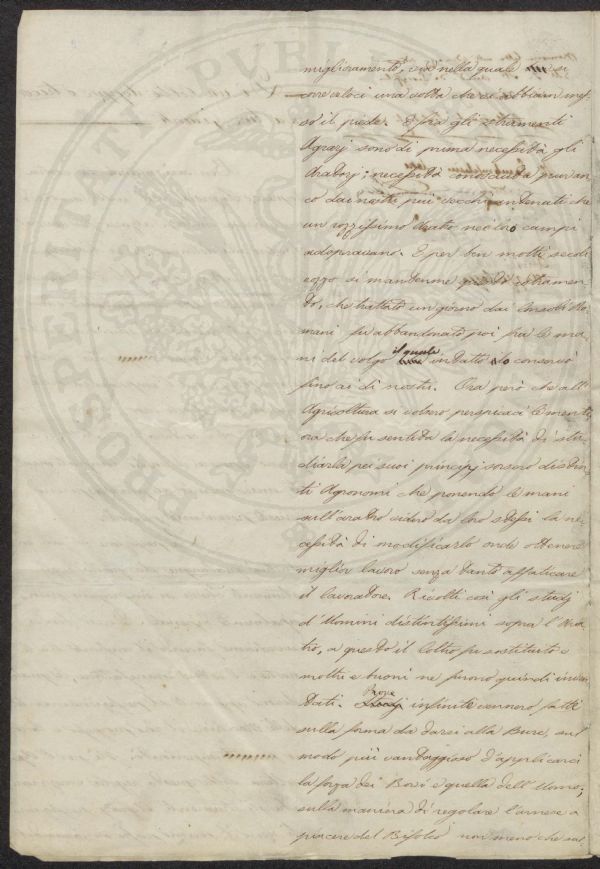 miglioramento, via nella quale si
corre veloci una volta che vi abbiam mes
so il piede. E fra gli strumenti
Agrarj sono di prima necessità gli
Aratorj; necessità conosciuta puranco
co dai nostri più vecchi antenati che
un rozzissimo Aratro nei loro campi
adopravano. E per ben molti secoli
rozzo si mantenne questo istrumen
to, che trattato un giorno dai Consoli Ro
mani fu abbandonato poi fra le ma
ni del volgo il quale intatto lo conservò
fino ai dì nostri. Ora però che all'
Agricoltura si volsero perspicaci le menti
ora che fu sentita la necessità di stu
diarla pei suoi principj sorsero distin
ti Agronomi che ponendo le mani
sull'aratro videro da loro stessi la ne
cessità di modificarlo onde ottenere
miglior lavoro senza tanto affaticare
il lavoratore. Rivolti così gli studj
d'Uomini distintissimi sopra l'Ara
tro, a questo il Coltro fu sostituito e
molti e buoni ne furono quindi inven
tati. Prove infinite vennero fatte
sulla forma da darsi alla Bure, sul
modo più vantaggioso d'applicarci
la forza dei Bovi e quella dell'Uomo;
sulla maniera di regolare l'arnese a
piacere del Bifolco non meno che sul